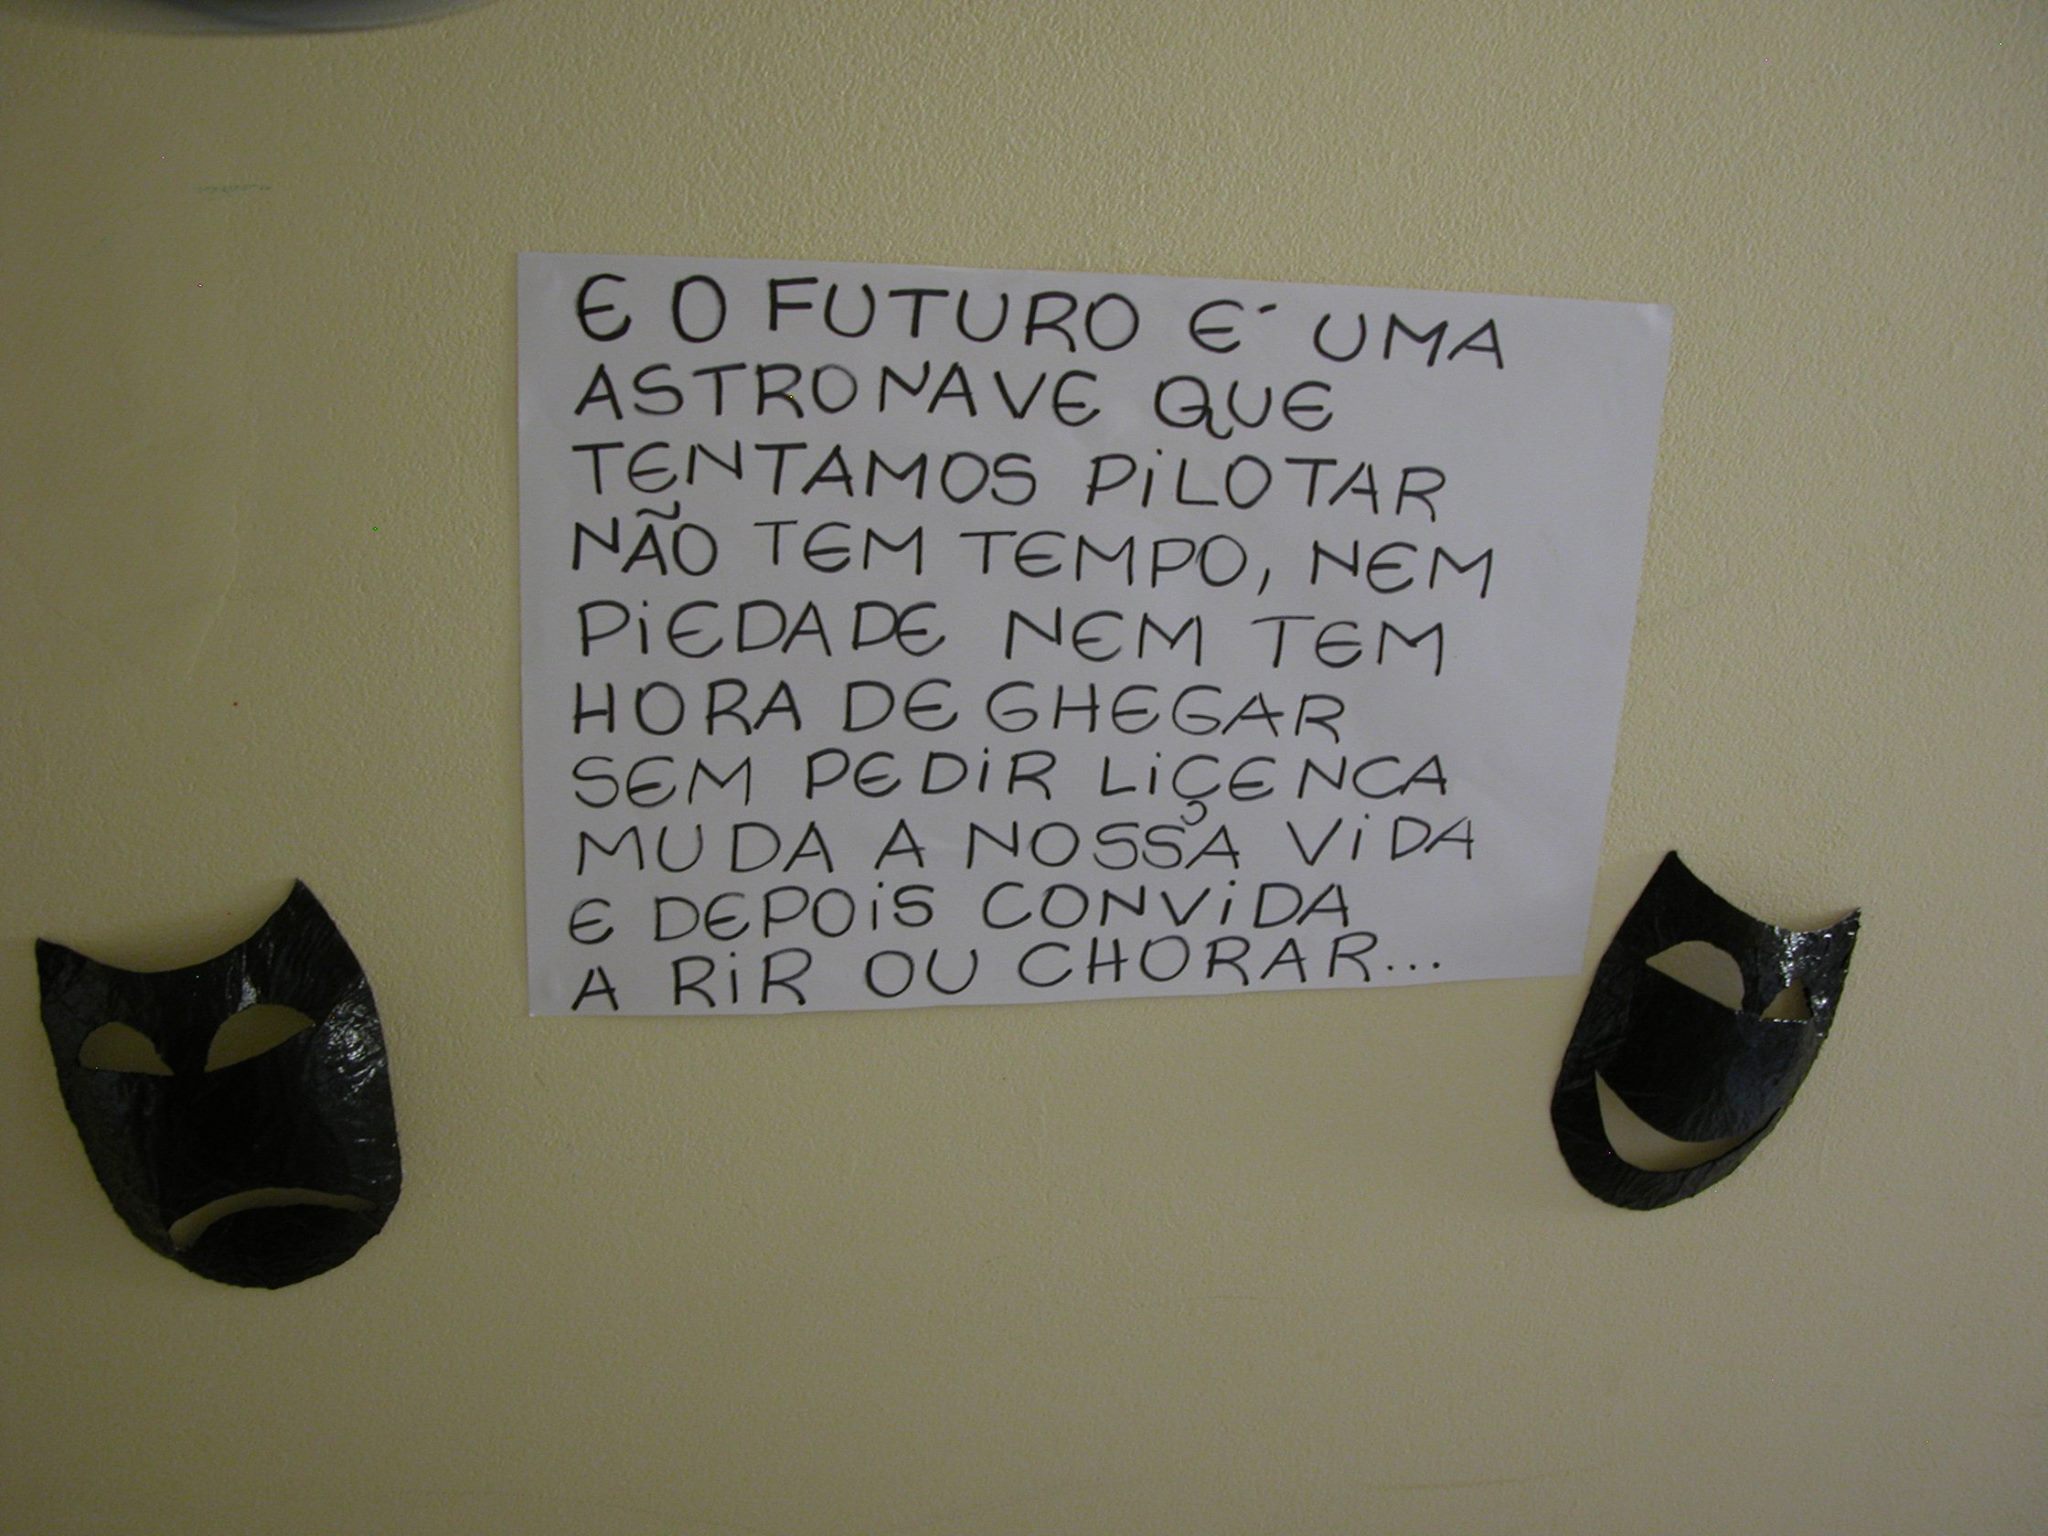 E O FUTURO É UMA
ASTRONAVE QUE
TENTAMOS PILOTAR
NÃO TEM TEMPO, NEM
PIEDADE NEM TEM
HORA DE GHEGAR
SEM PEDIR LIÇENCA
MUDA A NOSSA VIDA
E DEPOIS CONVIDA
A RIR OU CHORAR...